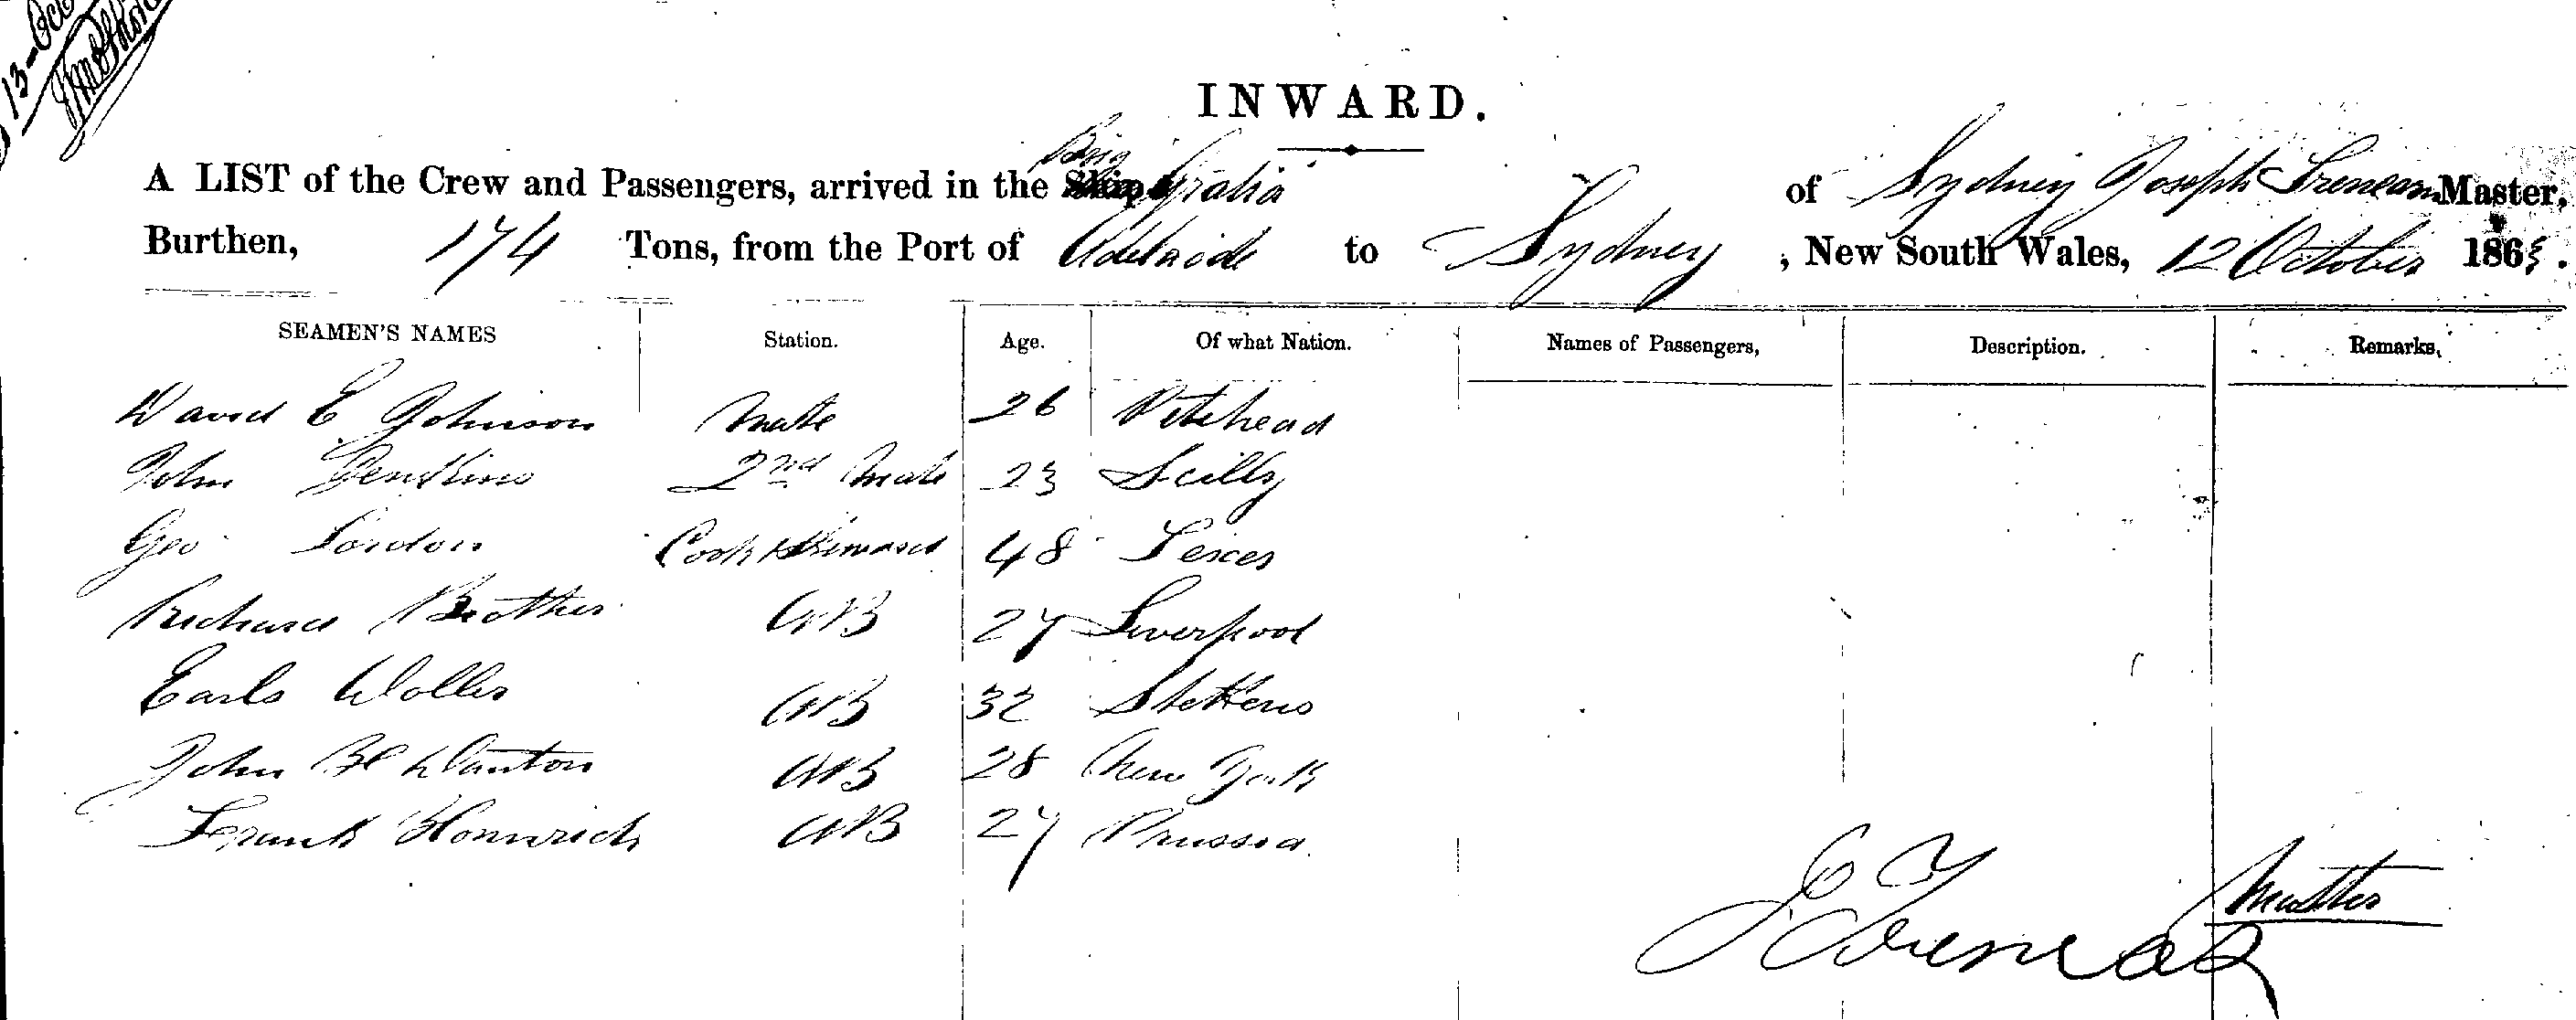 13 - Oct
INWARD.
Brig
A LIST of the Crew and Passengers, arrived in the Ship Gratia of Sydney Joseph Treneam Master,
Burthen, 174 Tons, from the Port of Adelaide to Sydney, New South Wales, 12 October 1865.
SEAMEN'S NAMES Station. Age. Of what Nation. Names of Passengers, Description. Remarks,
David E Johnson Mate 26 Petehead
John Jenkins 2nd Mate 23 Scilly
Geo Lordon Cook & Steward 48 Leices
Richard Brother AB 27 Liverpool
Earls Woller AB 32 Stettens
John Danton AB 28 New York
Frank Honnrich AB 27 Prussia
Master